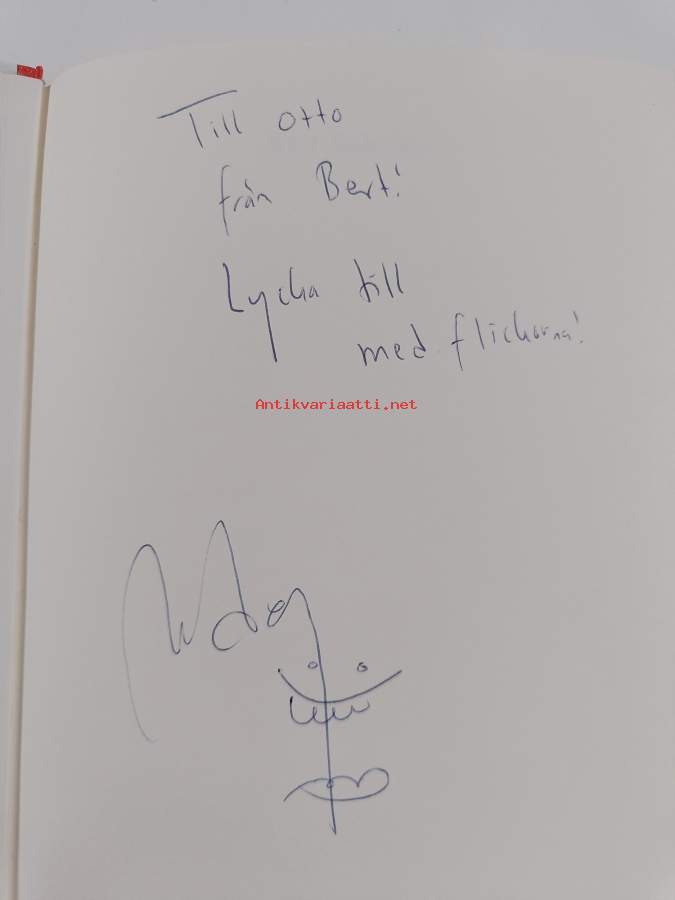 Till Otto
från Bert!
Lycka till
med flickorna!
Antikvariaatti.net